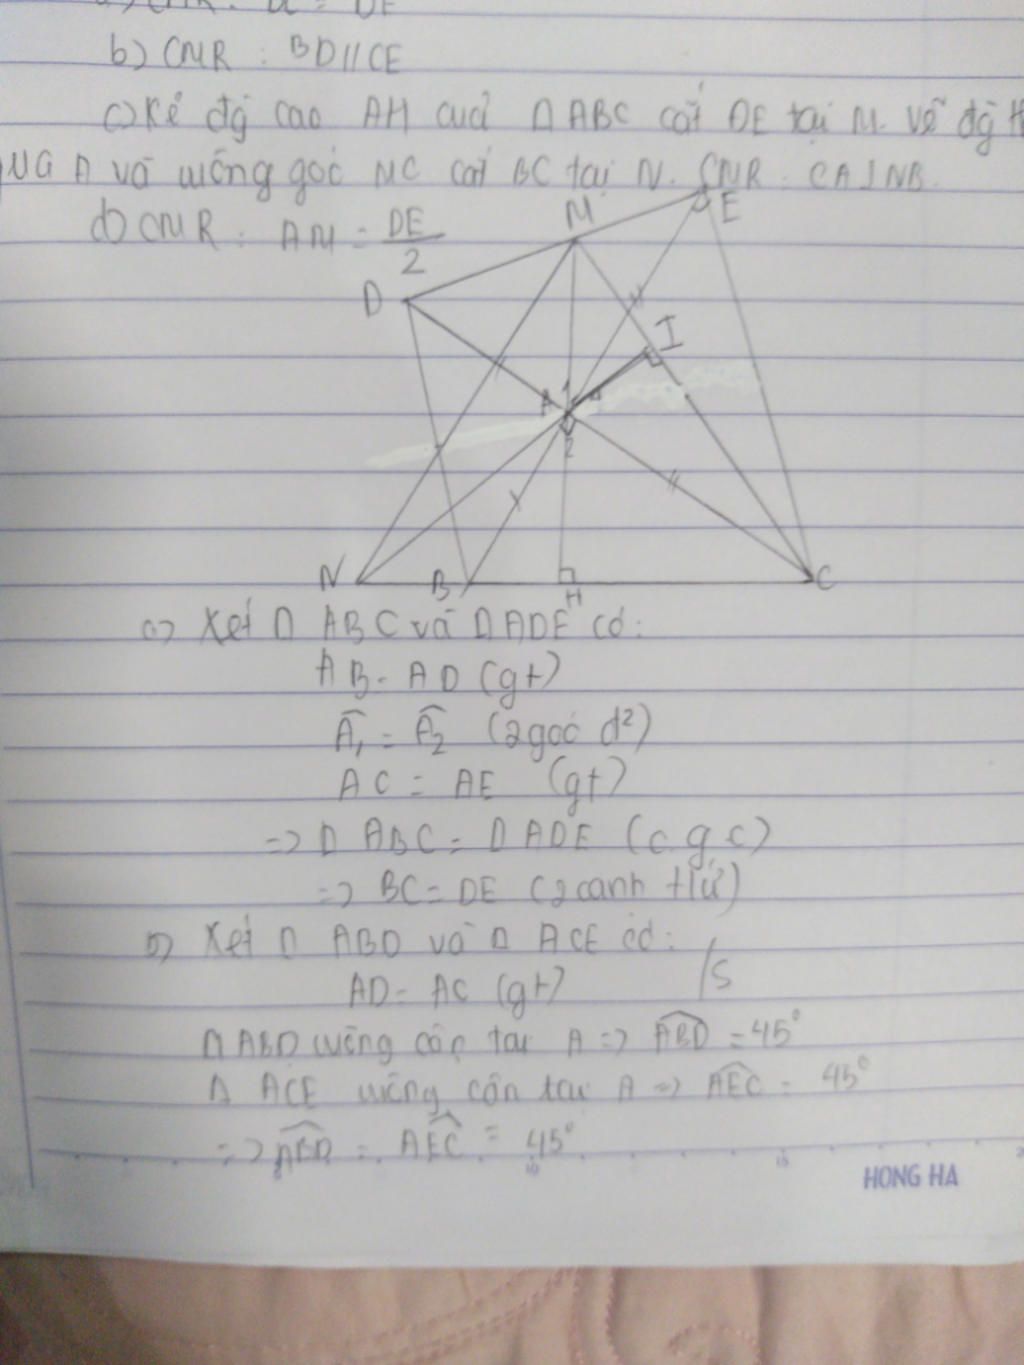 b) CMR : BD // CE
c) Kẻ đg cao AH của Δ ABC cắt DE tại M. Vẽ đg
qua A và vuông góc MC cắt BC tại N. CMR : CA ⊥ NB.
d) CMR : AM = DE/2
M
E
D
I
A 1
2
N B H C
a) Xét Δ ABC và Δ ADE có:
AB = AD (gt)
Â₁ = Â₂ (2 góc đ²)
AC = AE (gt)
=> Δ ABC = Δ ADE (c.g.c)
=> BC = DE (2 cạnh tứ)
b) Xét Δ ABD và Δ ACE có:
AD = AC (gt) /S
Δ ABD vuông cân tại A => ABD̂ = 45°
Δ ACE vuông cân tại A => AEĈ = 45°
=> ABD̂ = AEĈ = 45°
10 15
HONG HA